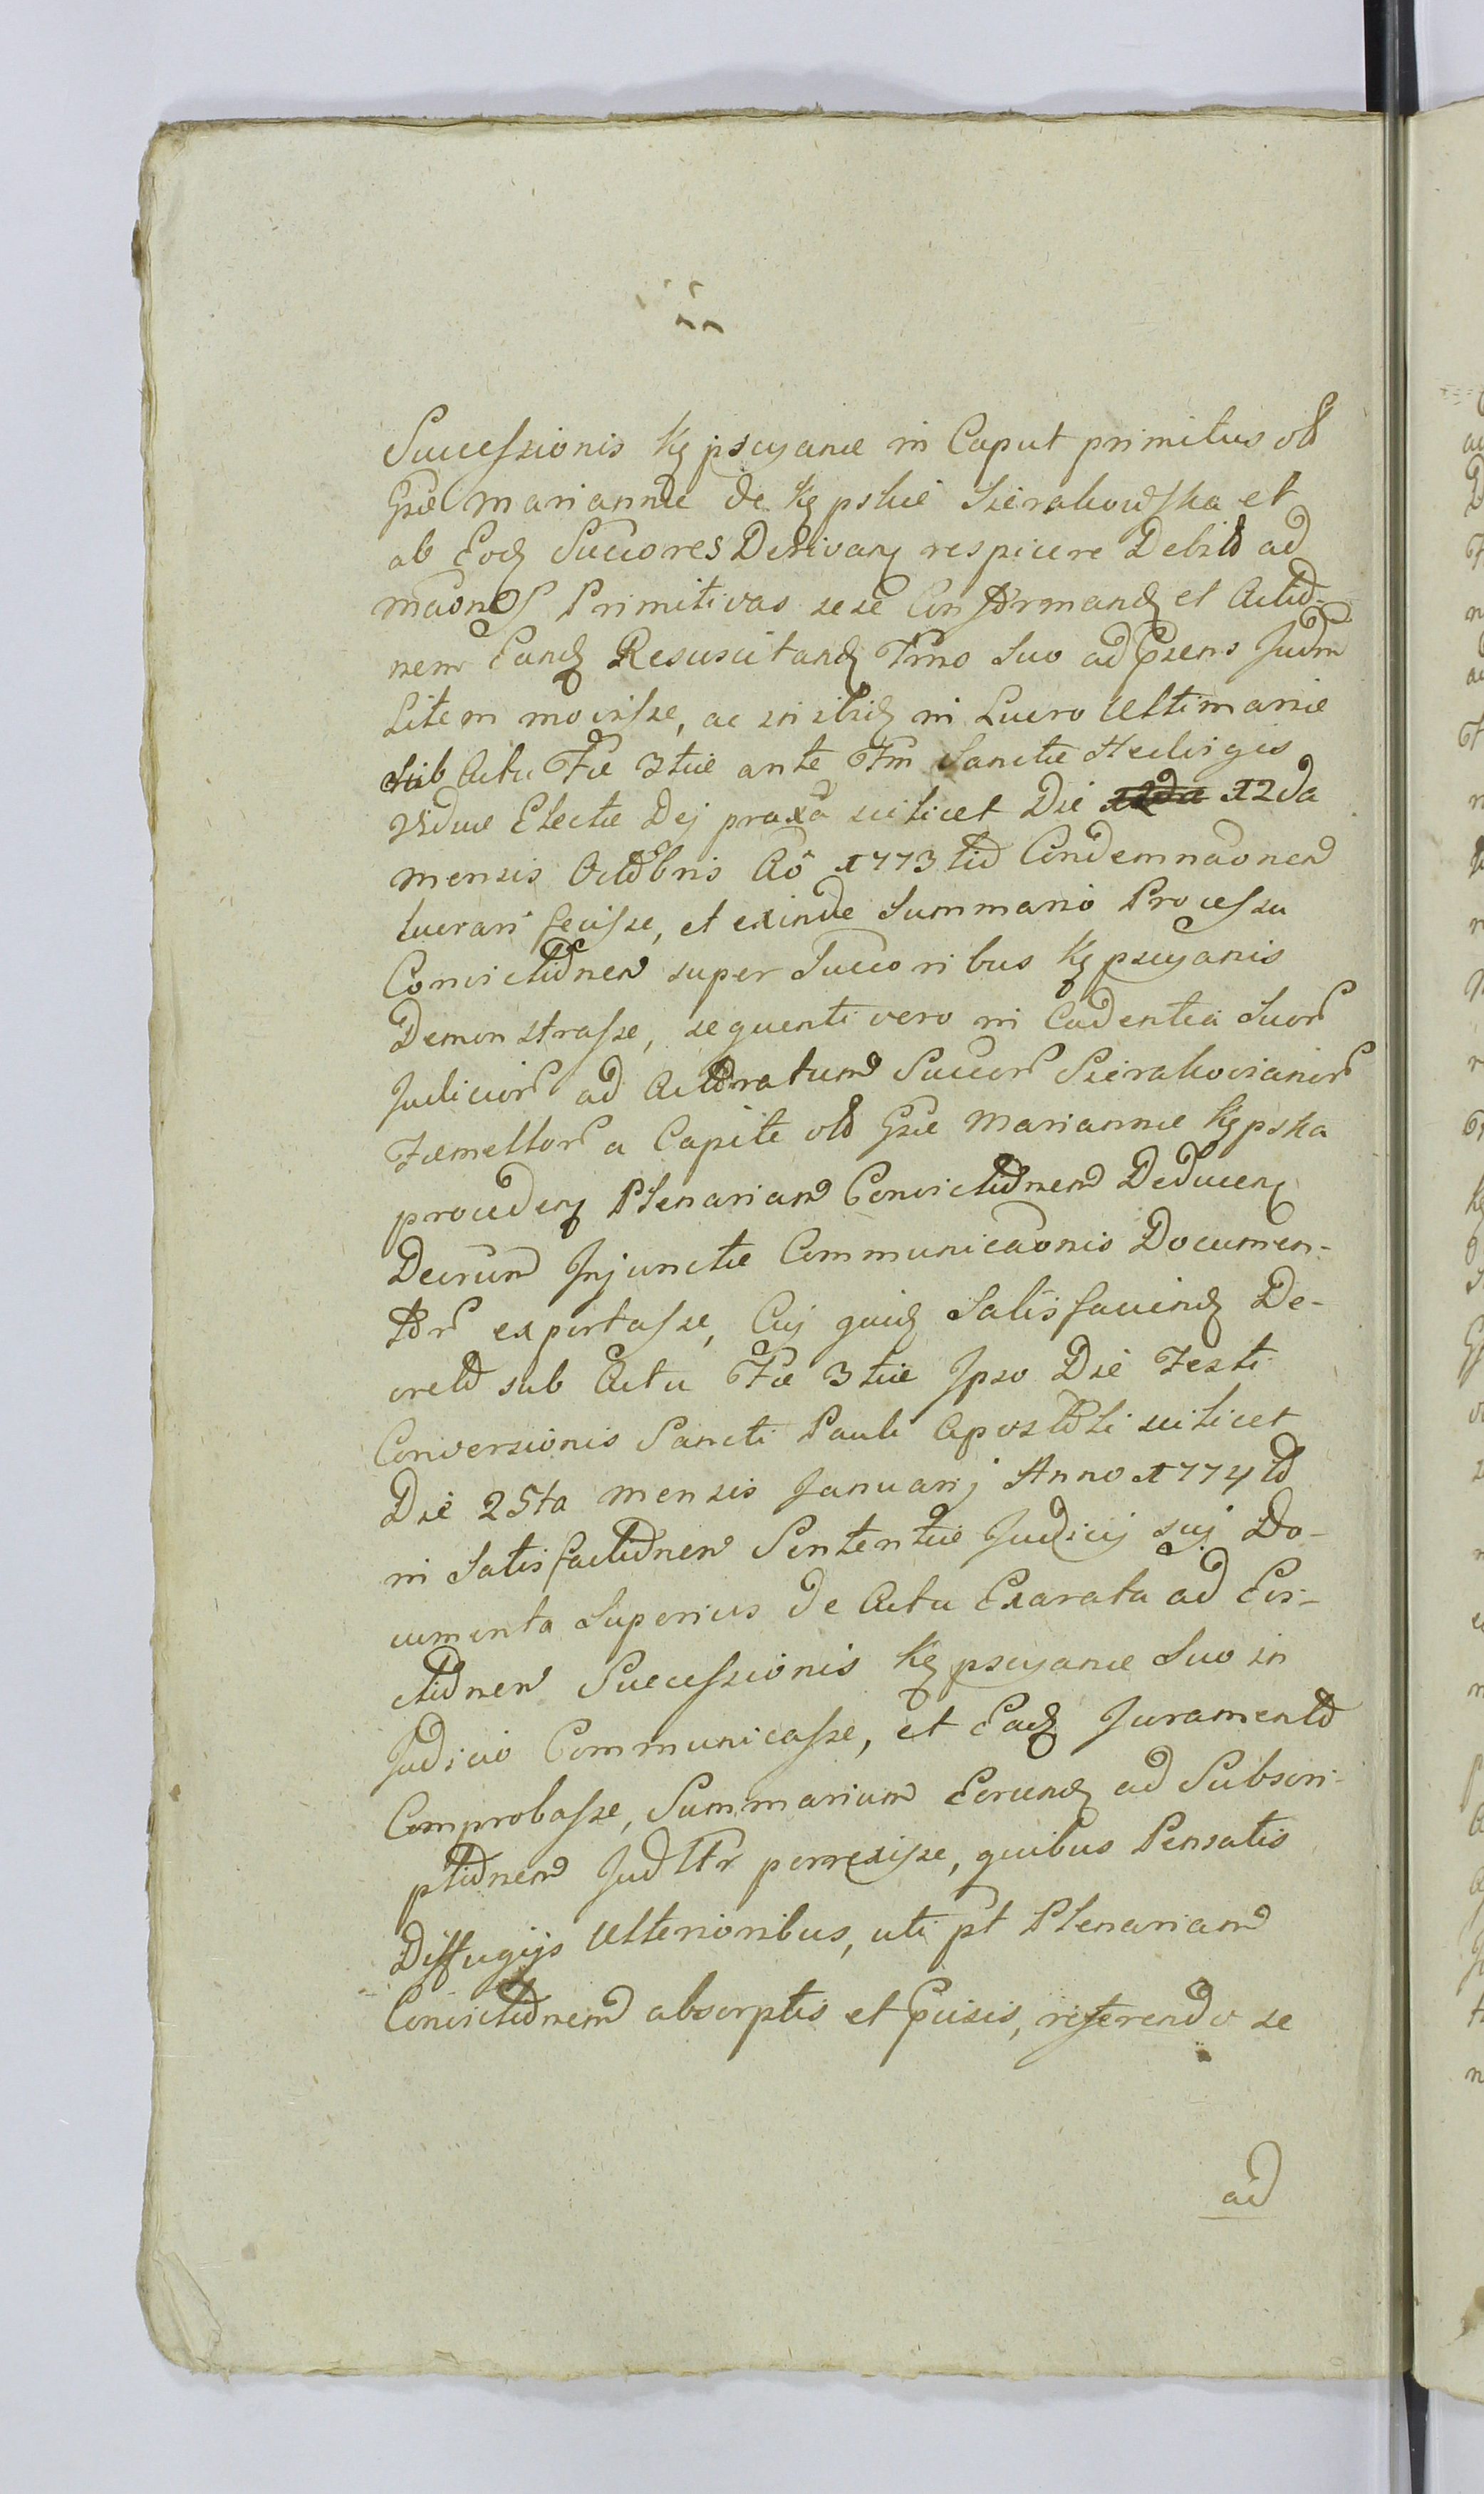 Successionis Kępscyanæ in Caput primitus olt
Gsæ Mariannæ de Kępskie Sierakowska et
ab Eodz Succores Derivanz respicere Debito ad
maones Primitivas sese Conformandz et Actio-
nem Eandz Resuscitandz Tmo Suo ad Psens Judm
Litem movisse, ac in ibidz in Lucro Ultimariæ
sub Actu Fæ 3tiæ ante Fm Sanctæ Hedvigis
Viduæ Electæ Dej praxa scilicet Die 12da
mensis Octobris Ao 1773tio Condemnaonem
lucrari fecisse, et exinde Summario Processu
Convictionem super Succoribus Kępscyanis
Demonstrasse, sequenti vero in Cadentia Suor
Judicior ad Actoratum Succor Sierakovianor
Fæmellor a Capite olt Gsæ Mariannæ Kępska
procedenz Plenariam Convictionem Deducenz
Decrum Injunctæ Communicaonis Documen-
tor exportasse, Cuj quidz Satisfaciendz De-
creto sub Actu Fæ 3tiæ Ipso Die Festi
Conversionis Sancti Pauli Apostoli scilicet
Die 25ta mensis Januarij Anno 1774to
in Satisfactionem Sententiæ Judicij sui Do-
cumenta Superius de Actu Exarata ad Evi-
ctionem Successionis Kępscyanæ Suo in
Judicio Communicasse, et Eadz Juramento
Comprobasse, Summarium Eorundz ad Subscri-
ptionem Jud ltr porrexisse, quibus Pensatis
Diffugijs Ulterioribus, uti pt Plenariam
Convictionem absorptis et Pcisis, referendo se
ad